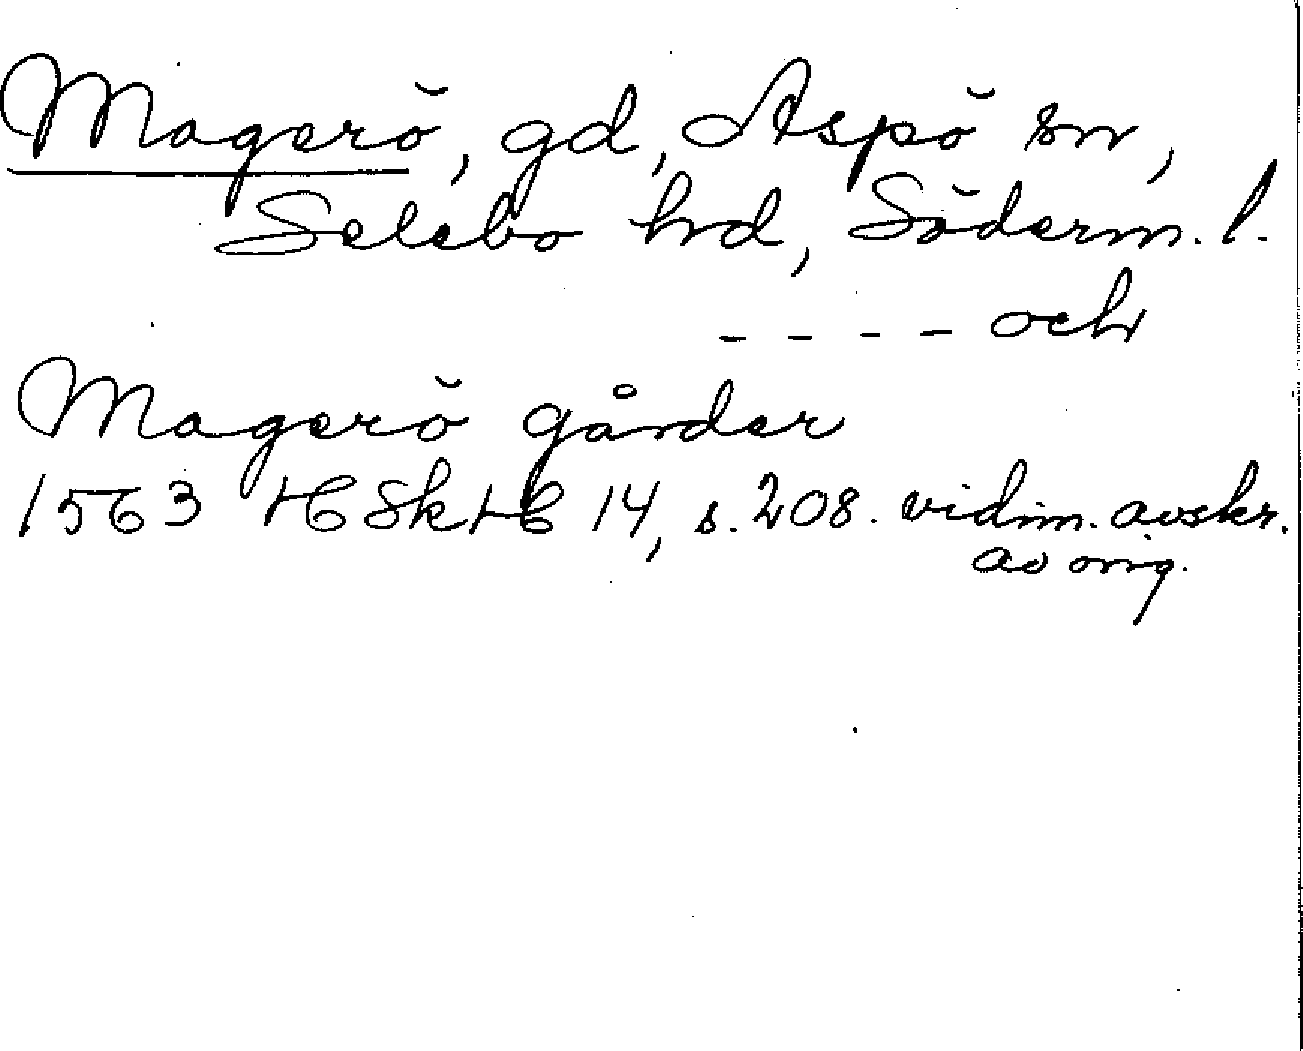 Magerö, gd, Aspö sn,
Selebo hd, Söderm. l.
- - - - och
Magerö gårder
1563 HSkH 14, s. 208. vidim. avskr.
av orig.